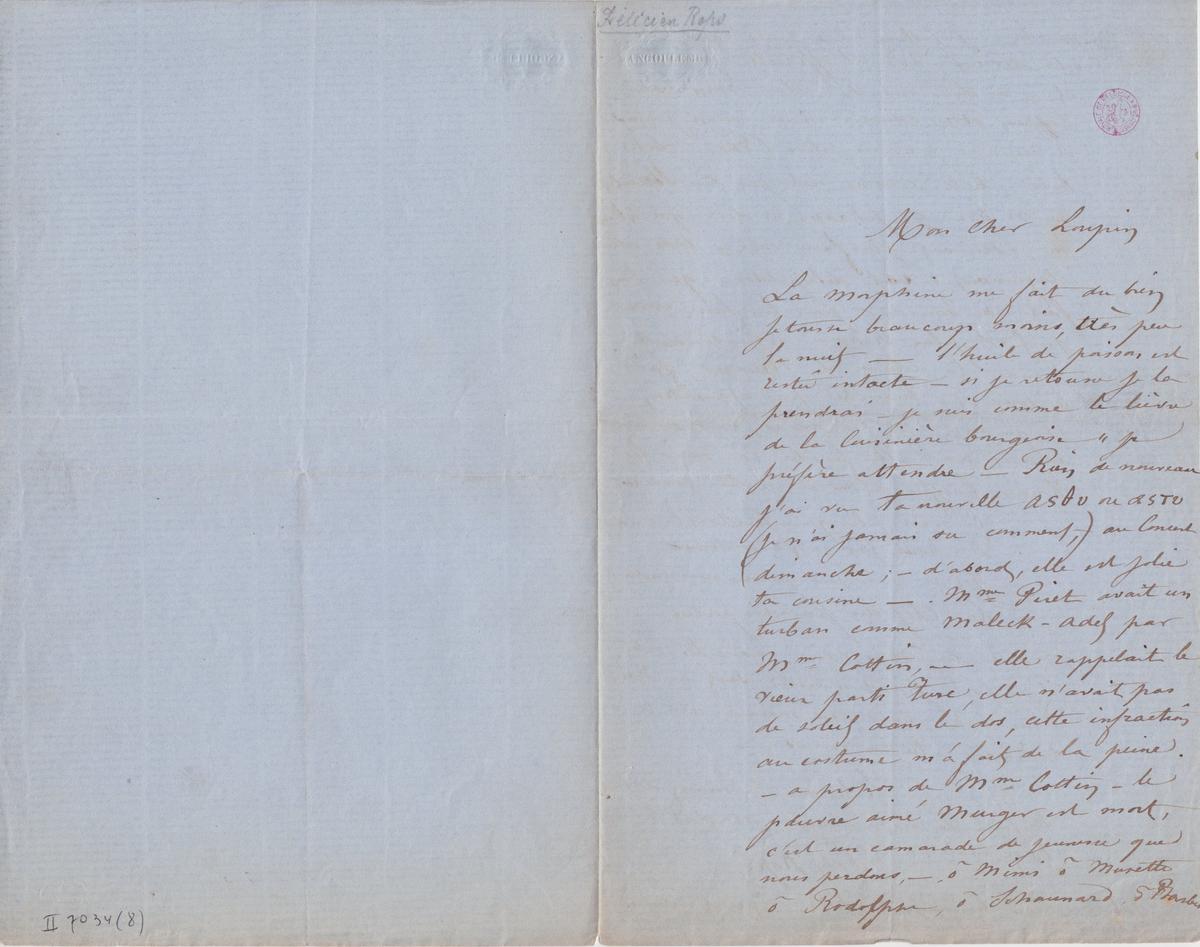 Félicien Rops
ANGOULEME
Mon cher Loupin
La morphine me fait du bien
je tousse beaucoup moins, très peu
la nuit — l'huile de poisson est
restée intacte — si je retousse je la
prendrai — je suis comme le lièvre
de la Cuisinière bourgeoise " je
préfère attendre — Rien de nouveau
j'ai vu ta nouvelle ou
(je n'ai jamais su comment,) au Concert
dimanche ; — d'abord, elle est jolie
ta cousine — . Mme Piret avait un
turban comme Maleck-adel par
Mme Cottin, — elle rappelait le
vieux parti Turc, elle n'avait pas
de soleil dans le dos, cette infraction
au costume m'a fait de la peine.
— a propos de Mme Cottin — le
pauvre aimé Murger est mort,
c'est un camarade de jeunesse que
nous perdons, — ô Mimi ô Musette
ô Rodolphe, ô Schaunard ô
II 7034 (8)